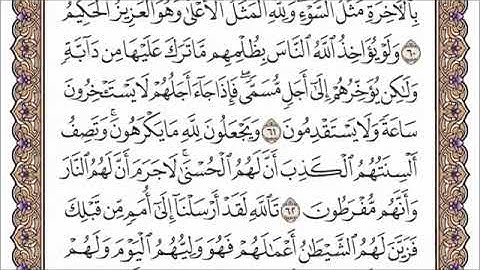 بِٱلْأَخِرَةِ مَثَلُ ٱلسَّوْءِ وَلِلَّهِ ٱلْمَثَلُ ٱلْأَعْلَىٰ وَهُوَ ٱلْعَزِيزُ ٱلْحَكِيمُ
٦٠ وَلَوْ يُؤَاخِذُ ٱللَّهُ ٱلنَّاسَ بِظُلْمِهِم مَّا تَرَكَ عَلَيْهَا مِن دَآبَّةٍ
وَلَٰكِن يُؤَخِّرُهُمْ إِلَىٰٓ أَجَلٍ مُّسَمًّى ۖ فَإِذَا جَآءَ أَجَلُهُمْ لَا يَسْتَـْٔخِرُونَ
سَاعَةً وَلَا يَسْتَقْدِمُونَ ٦١ وَيَجْعَلُونَ لِلَّهِ مَا يَكْرَهُونَ ۚ وَتَصِفُ
أَلْسِنَتُهُمُ ٱلْكَذِبَ أَنَّ لَهُمُ ٱلْحُسْنَىٰ ۖ لَا جَرَمَ أَنَّ لَهُمُ ٱلنَّارَ
وَأَنَّهُم مُّفْرَطُونَ ٦٢ تَٱللَّهِ لَقَدْ أَرْسَلْنَآ إِلَىٰٓ أُمَمٍ مِّن قَبْلِكَ
فَزَيَّنَ لَهُمُ ٱلشَّيْطَٰنُ أَعْمَٰلَهُمْ فَهُوَ وَلِيُّهُمُ ٱلْيَوْمَ وَلَهُمْ